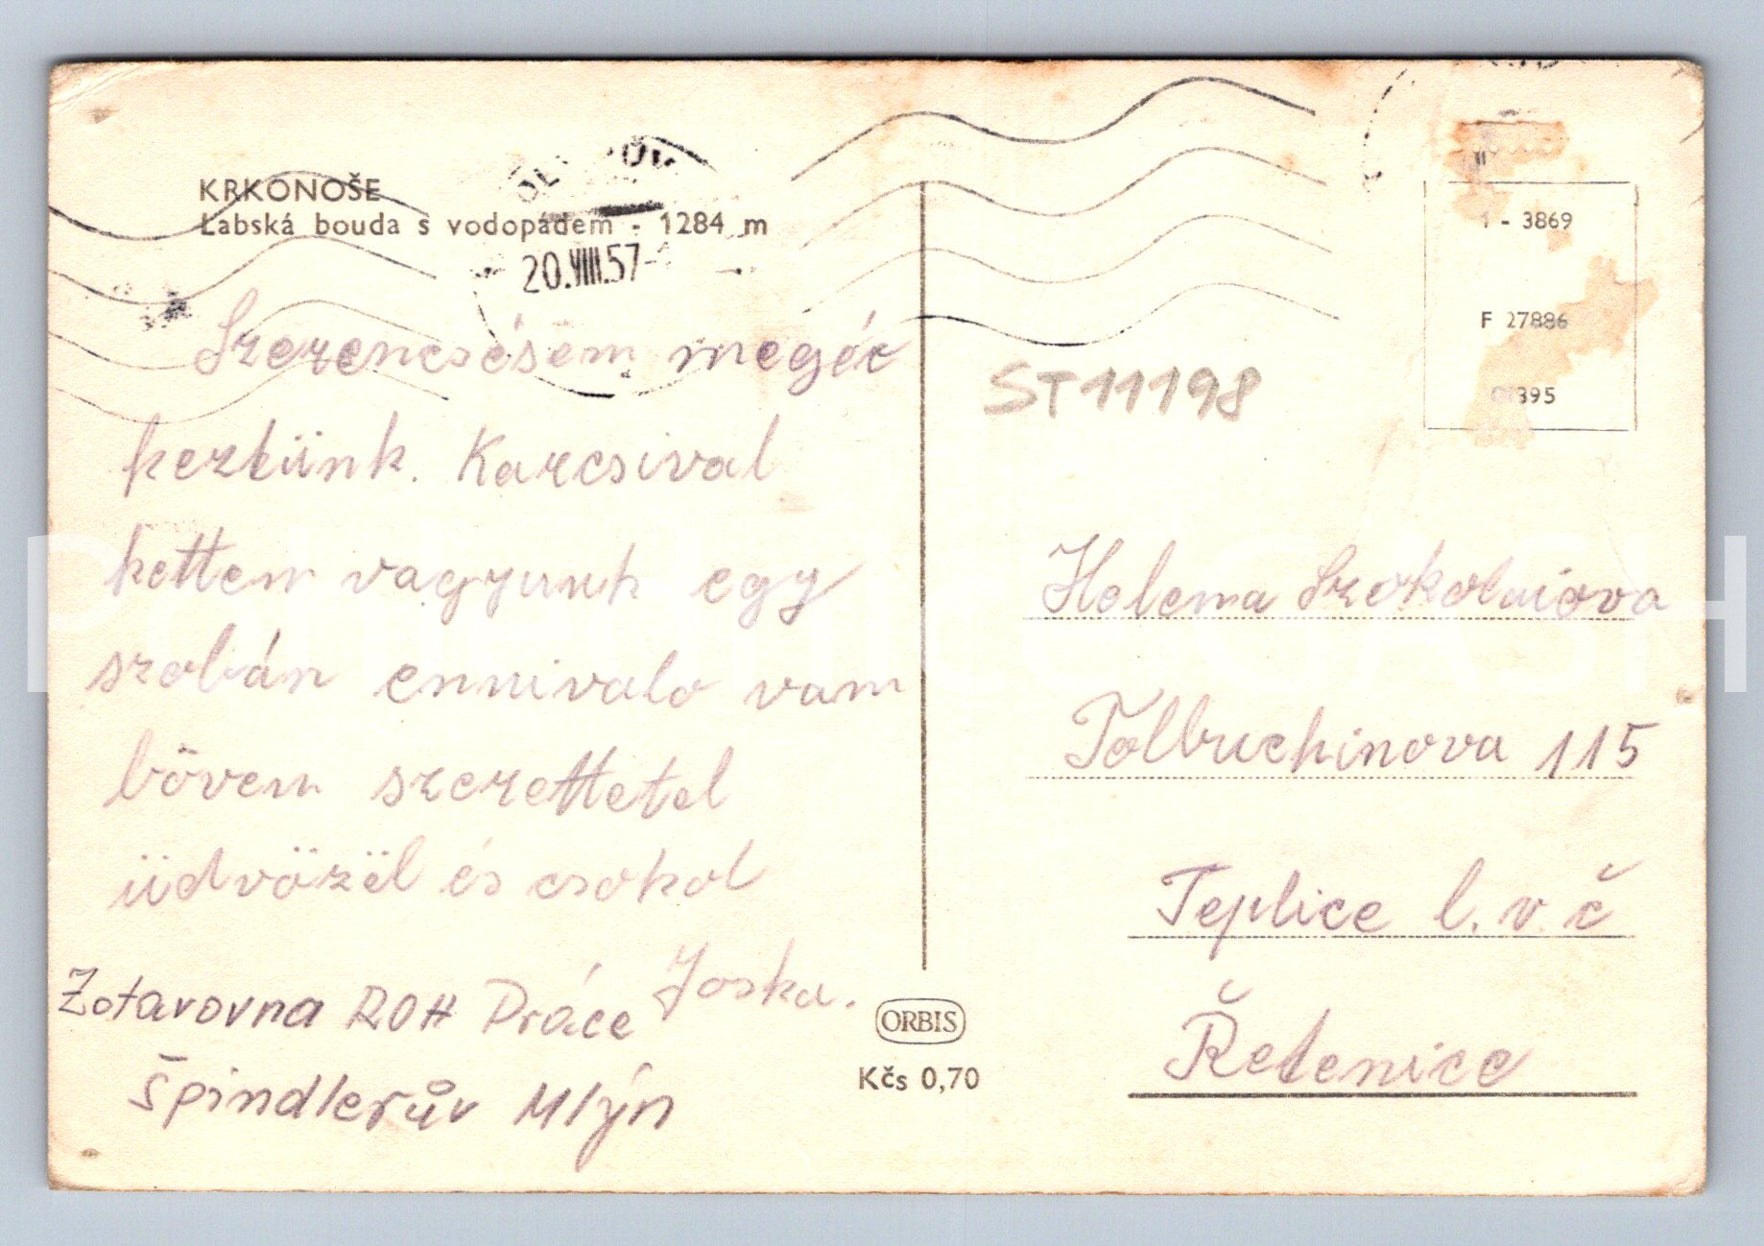 KRKONOŠE
Labská bouda s vodopádem - 1284 m
20.VIII.57
1 - 3869
F 27886
ST11198
Szerencsésem megér
keztünk. Karcsival
kettem vagyunk egy
szobán ennivalo vam
bövem szerettetel
üdvözöl és csokol
Joska.
Zotavovna ROH Práce
Špindlerův Mlýn
ORBIS
Kčs 0,70
Helena
Tolbuchinova 115
Teplice l. v. č
Řetenice